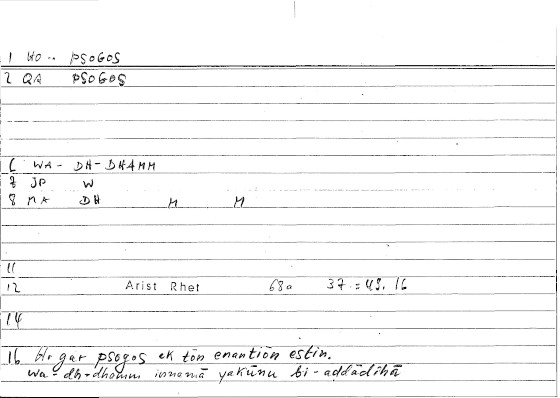 1 HO-- PSOGOS
2 QA PSOGOS
6 WA- DH-DHAMM
7 JP W
8 MA DH M M
11
12 Arist Rhet 68a 37 = 49. 16
14
16 Ho gar psogos ek tōn enantiōn estin.
wa-dh-dhamm innamā yakūnu bi-aḍdādihā